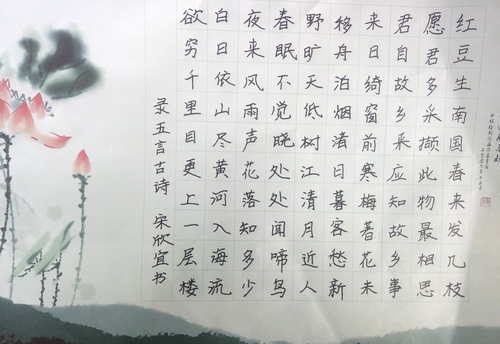 红豆生南国春来发几枝
愿君多采撷此物最相思
君自故乡来应知故乡事
来日绮窗前寒梅著花未
移舟泊烟渚日暮客愁新
野旷天低树江清月近人
春眠不觉晓处处闻啼鸟
夜来风雨声花落知多少
白日依山尽黄河入海流
欲穷千里目更上一层楼
录五言古诗 宋欣宜书